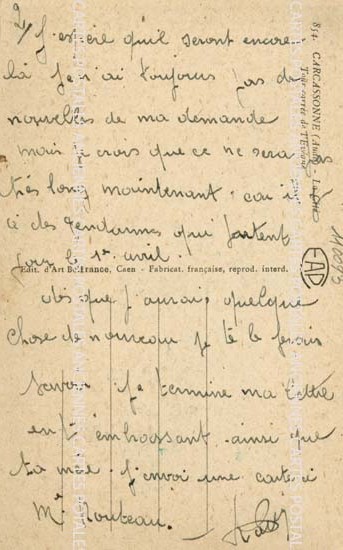 2/ J'espère qu'il seront encore
là je n'ai toujours pas de
nouvelles de ma demande
mais je crois que ce ne sera pas
très long maintenant. car il
à des gendarmes qui partent
pour le 1er avril.
Edit. d'Art Bt. France, Caen - Fabricat. française, reprod. interd.
dès que j'aurais quelque
chose de nouveau je te le ferais
savoir. je termine ma lettre
en t'embrassant ainsi que
ta mère. J'envoi une carte à
Mr
854. CARCASSONNE (Aude) - La Cité
Tour carrée de l'Évêque
EAD